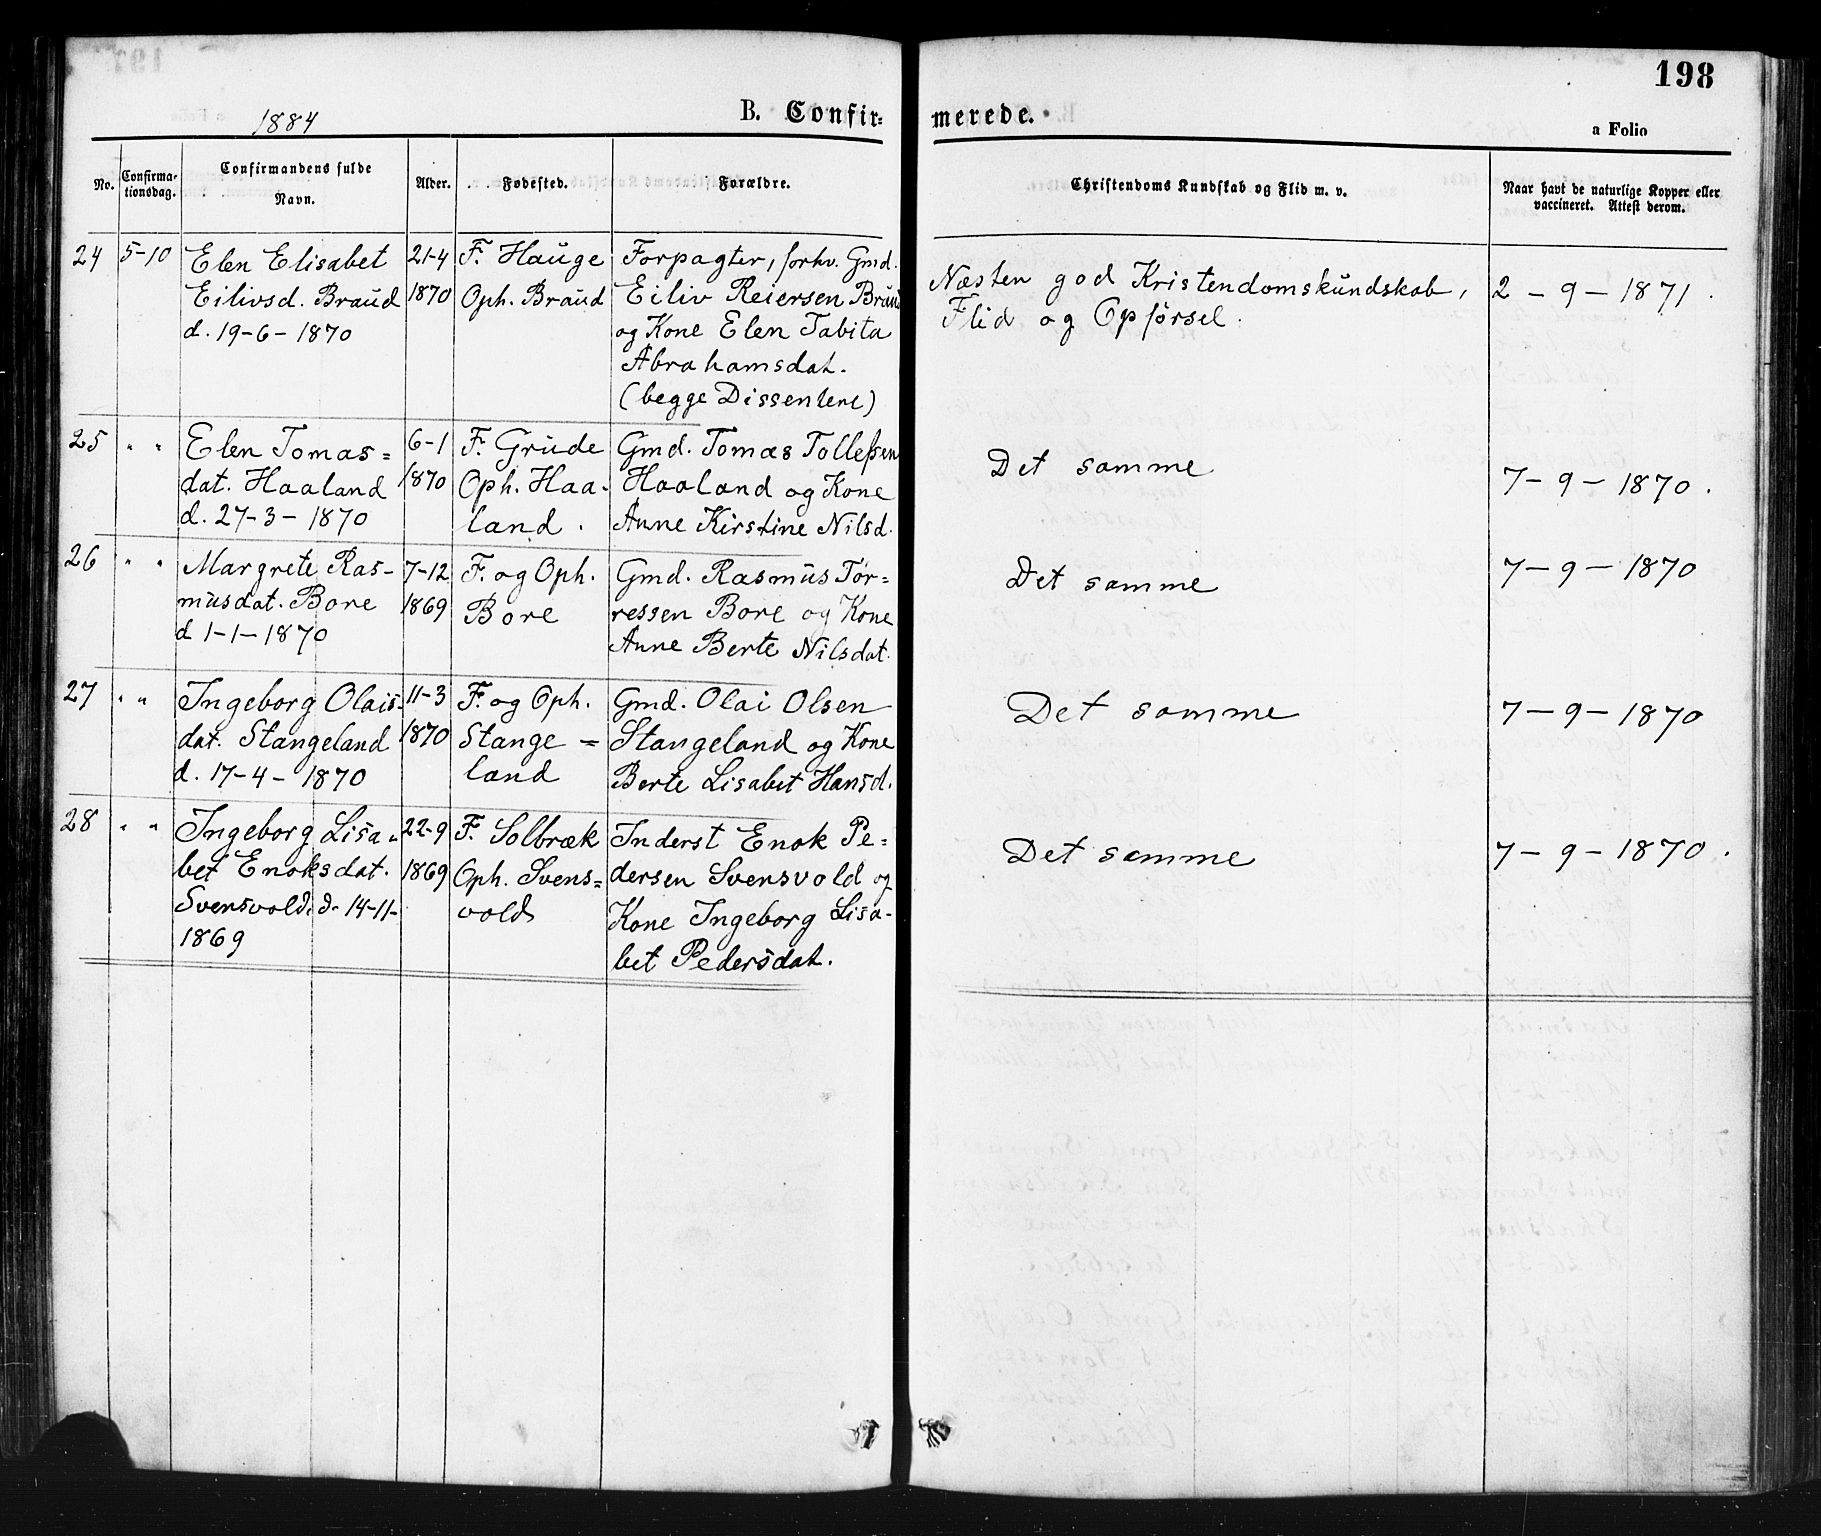 198
1884
B. Confir-
merede.
a Folio
No.
Confirma-
tionsdag.
Confirmandens fulde
Navn.
Alder.
Fødested.
Forældre.
Christendoms Kundskab og Flid m. v.
Naar havt de naturlige Kopper eller
vaccineret. Attest derom.
24
5-10
Elen Elisabet
Eilivsd. Braud
d. 19-6-1870
21-4
1870
F. Hauge
Oph. Braud
Forpagter, forhv. Gmd.
Eiliv Reiersen Braud
og Kone Elen Tabita
Abrahamsdat.
(begge Dissentere)
Næsten god Kristendomskundskab,
Flid og Opførsel.
2-9-1871.
25
" "
Elen Tomas=
dat. Haaland
d. 27-3-1870
6-1
1870
F. Grude
Oph. Haa-
land.
Gmd. Tomas Tollefsen
Haaland og Kone
Anne Kirstine Nilsd.
Det samme
7-9-1870.
26
" "
Margrete Ras-
musdat. Bore
d 1-1-1870
7-12
1869
F. og Oph.
Bore
Gmd. Rasmus Tør=
ressen Bore og Kone
Anne Berte Nilsdat.
Det samme
7-9-1870
27
" "
Ingeborg Olais-
dat. Stangeland
d. 17-4-1870
11-3
1870
F. og Oph.
Stange=
land
Gmd. Olai Olsen
Stangeland og Kone
Berte Lisabet Hansd.
Det samme
7-9-1870
28
" "
Ingeborg Lisa-
bet Enoksdat.
Svensvold. d. 14-11-
1869
22-9
1869
F. Solbræk
Oph. Svens=
vold
Inderst Enok Pe=
dersen Svensvold og
Kone Ingeborg Lisa-
bet Pedersdat.
Det samme
7-9-1870.